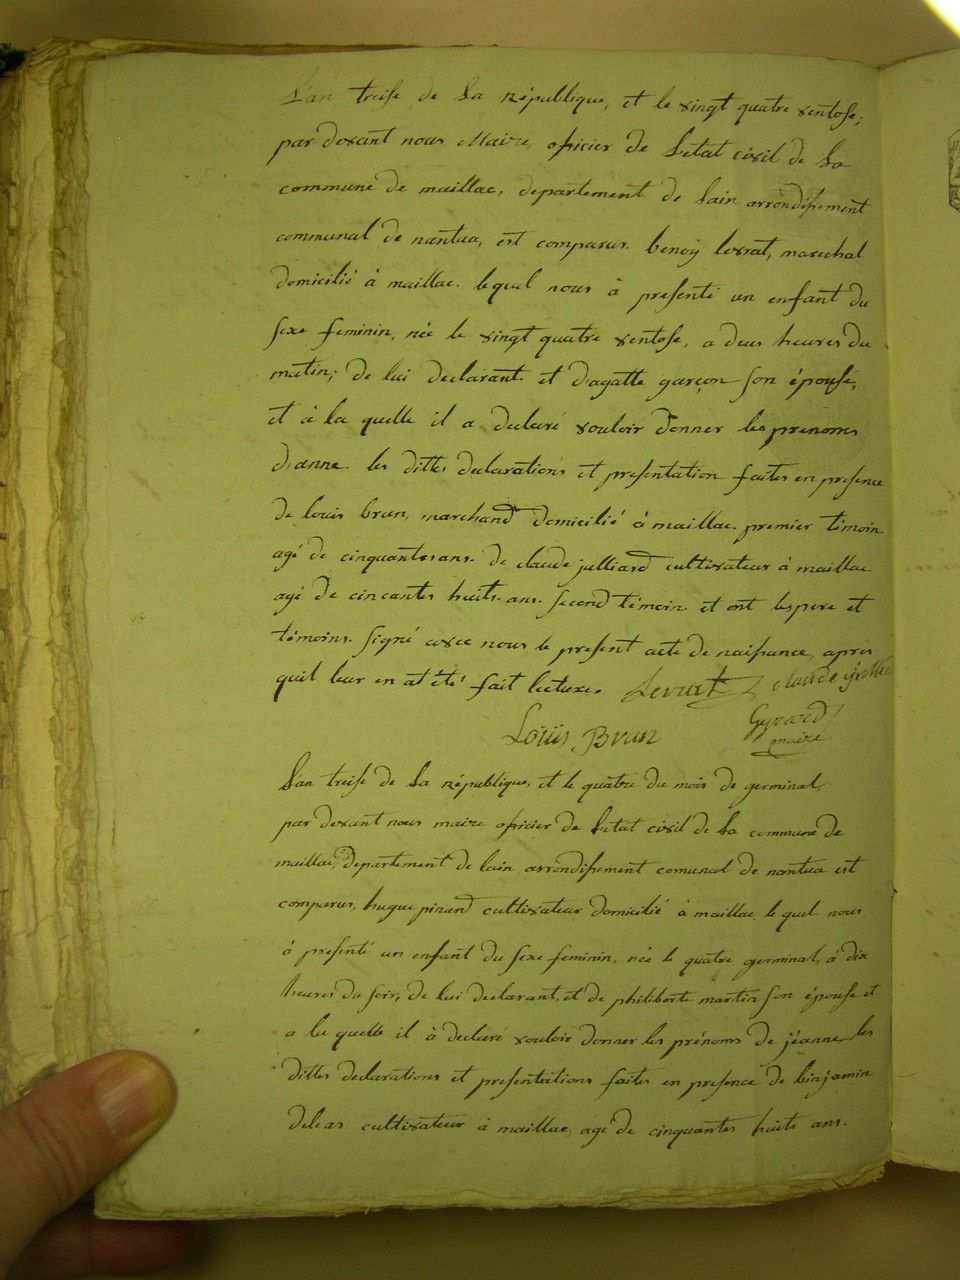 L'an treise de La république, et le vingt quatre ventose;
par devant nous Maire, oficier de Letat civil de La
commune de maillac, departement de Lain arrondissement
communal de nantua, est comparus. benoy levrat, marechal
domicilié à maillac. lequel nous à presenté un enfant du
sexe feminin, née le vingt quatre ventose, a deus heures du
matin; de lui declarant. et d'agatte garçon son épouse,
et à la quelle il a declaré vouloir donner les prenoms
d'anne. les dittes declarations et presentation faites en presence
de louis brun, marchand domicilié à maillac. premier témoin
agé de cinquantes ans. de claude julliard cultivateur à maillac
agé de cincantes huits. ans. second témoin et ont les pere et
témoins. signé avec nous le present acte de naissance, apres
quil leur en at été fait lecture. Levrat claude
Louis Brun Gyrard
maire
L'an treise de La république, et le quatre du mois de germinal,
par devant nous maire oficier de Letat civil de La commune de
maillac, departement de lain arrondissement comunal de nantua est
comparus, hugue pinand cultivateur domicilié à maillac, le quel nous
à presenté un enfant du sexe feminin, née le quatre germinal, à dix
heures du soir, de lui declarant, et de philiberte martin son épouse et
a la quelle il à declaré vouloir donner les prénoms de jéanne, les
dittes declarations et presentations faites en presence de binjamin
deleas cultivateur à maillac, agé de cinquantes huits ans.